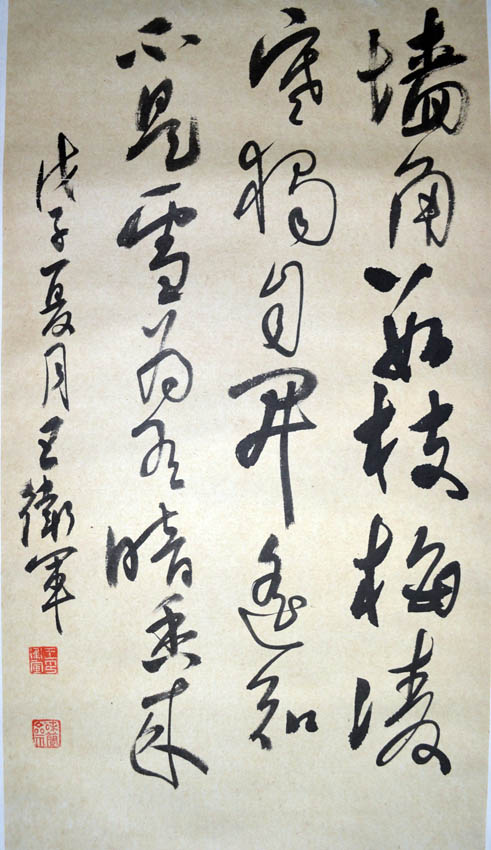 墙角数枝梅凌
寒独自开遥知
不是雪为有暗香来
戊子夏月王卫军